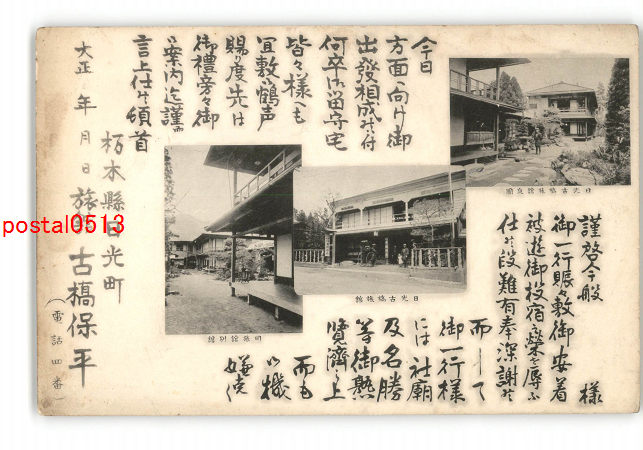 様
謹啓今般
御一行賑々敷御安着
被遊御投宿之栄を辱ふ
仕候段難有奉深謝候
而して
御一行様
には社廟
及名勝
等御熟
覧濟之上
而も
御機
嫌能
今日
方面へ向け御
出發相成候に付
何卒御留守宅
皆々様へも
宜敷御鶴声
賜り度先は
御禮旁々御
案内迄謹而
言上仕候頓首
大正 年 月 日
栃木縣日光町
旅館 古橋保平
(電話四番)
日光古橋旅館庭園
日光古橋旅館
同旅館別館
postal0513